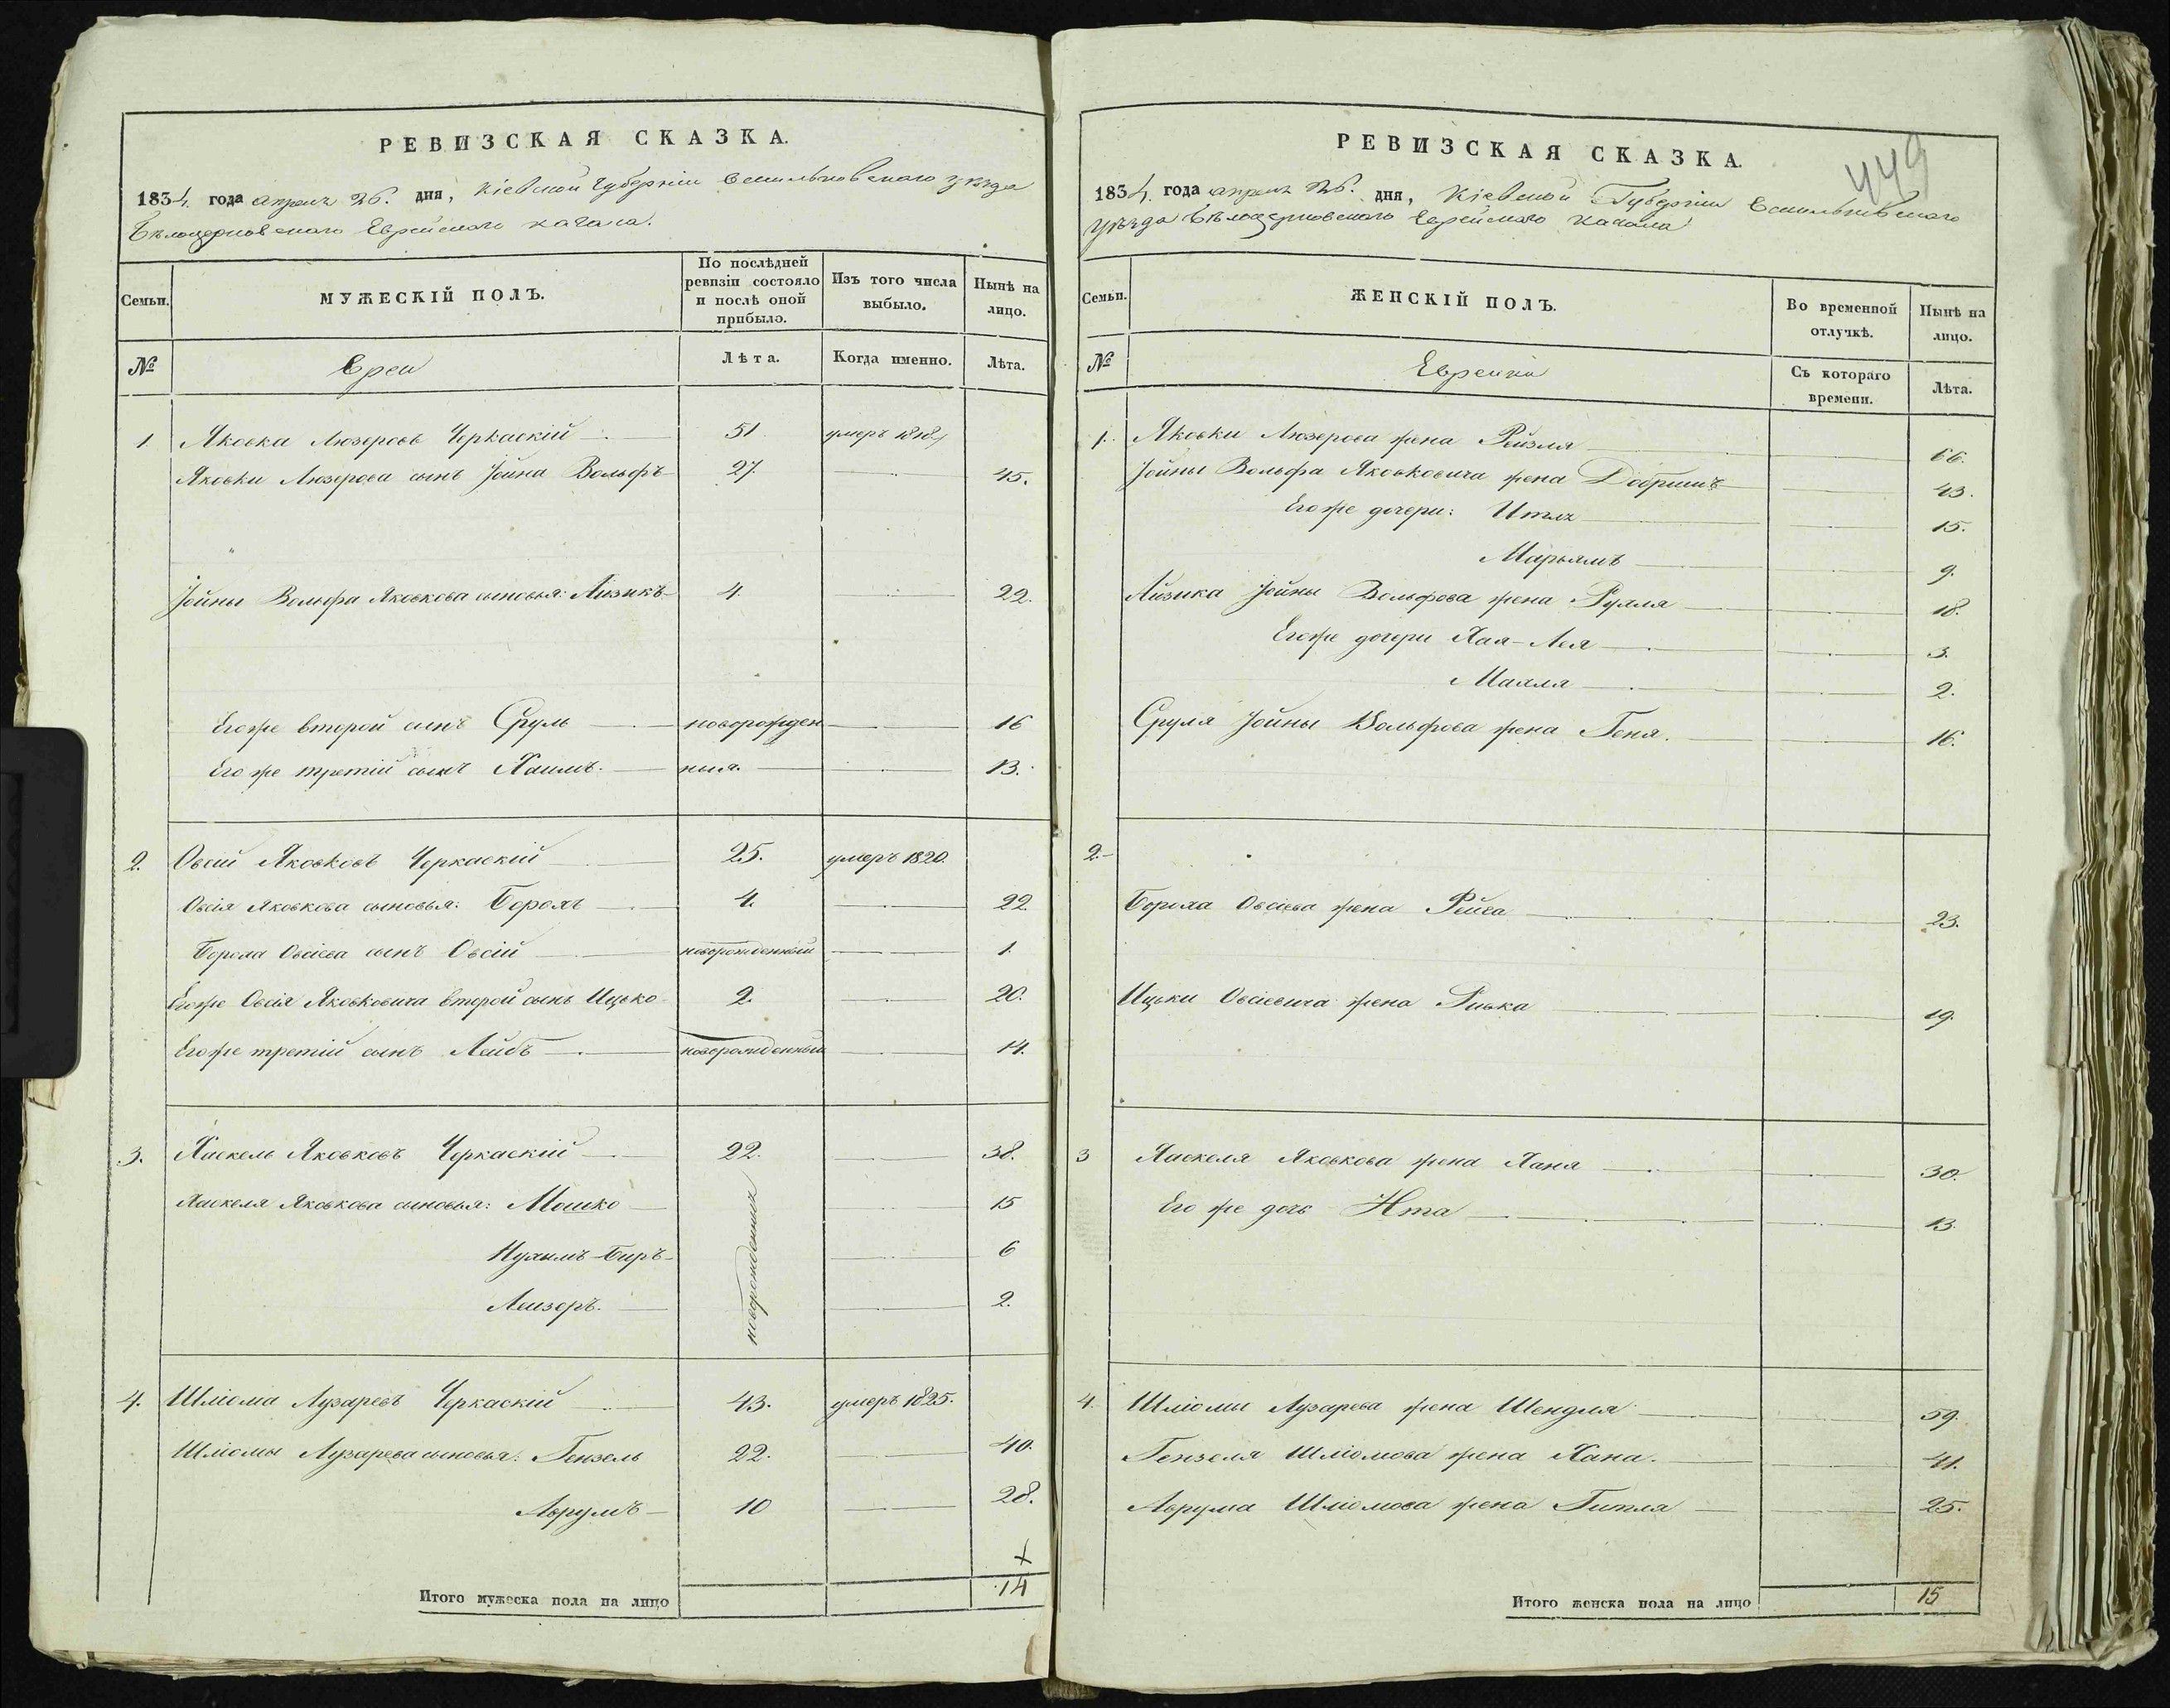 РЕВИЗСКАЯ СКАЗКА.
1834. года апреля 26. дня, Кіевской Губерніи Васильковскаго уѣзда
Бѣлоцерковскаго Еврейскаго кагала.
Семьи.
МУЖЕСКІЙ ПОЛЪ.
По послѣдней ревизіи состояло и послѣ оной прибыло.
Изъ того числа выбыло.
Нынѣ на лицо.
№
Евреи
Лѣта.
Когда именно.
Лѣта.
1. Яковка Люзеровъ Черкаскій 51 умеръ 1818
Яковки Люзерова сынъ Іойна Вольфъ 27. 45.
Іойны Вольфа Яковкова сыновья: Айзикъ 4. 22.
Его же второй сынъ Сруль новорожден 16
Его же третій сынъ Хаимъ. ныя. 13.
2. Овсій Яковковъ Черкаскій 25. умеръ 1820.
Овсія Яковкова сыновья: Борохъ 4. 22.
Бороха Овсіева сынъ Овсій новорожденный 1.
Его же Овсія Яковковича второй сынъ Ицько 2. 20.
Его же третій сынъ Лейбъ новорожденный 14.
3. Хаскель Яковковъ Черкаскій 22. 38.
Хаскеля Яковкова сыновья: Мошко новорожденныя 15
Нухимъ-Беръ 6
Лейзоръ. 2.
4. Шліома Лузаревъ Черкаскій 43. умеръ 1825.
Шліомы Лузарева сыновья: Гензель 22. 40.
Аврумъ 10 28.
Итого мужеска пола на лицо 14
РЕВИЗСКАЯ СКАЗКА.
449
1834. года апреля 26. дня, Кіевской Губерніи Васильковскаго
Уѣзда Бѣлоцерковскаго Еврейскаго Кагала
Семьи.
ЖЕНСКІЙ ПОЛЪ.
Во временной отлучкѣ.
Нынѣ на лицо.
№
Еврейки
Съ котораго времени.
Лѣта.
1. Яковки Люзерова жена Рейзля 66.
Іойны Вольфа Яковковича жена Добришъ 43.
Его же дочери: Итля 15.
Марьямъ 9.
Айзика Іойны Вольфова жена Рухля 18.
Его же дочери Хая-Лея 3.
Махля 2.
Сруля Іойны Вольфова жена Геня. 16.
2.
Бороха Овсіева жена Рейса 23.
Ицьки Овсіевича жена Ривка 19.
3 Хаскеля Яковкова жена Ханя 30.
Его же дочь Ита 13.
4. Шліомы Лузарева жена Шендля 59.
Гензеля Шліомова жена Хана. 41.
Аврума Шліомова жена Гитля 25.
Итого женска пола на лицо 15